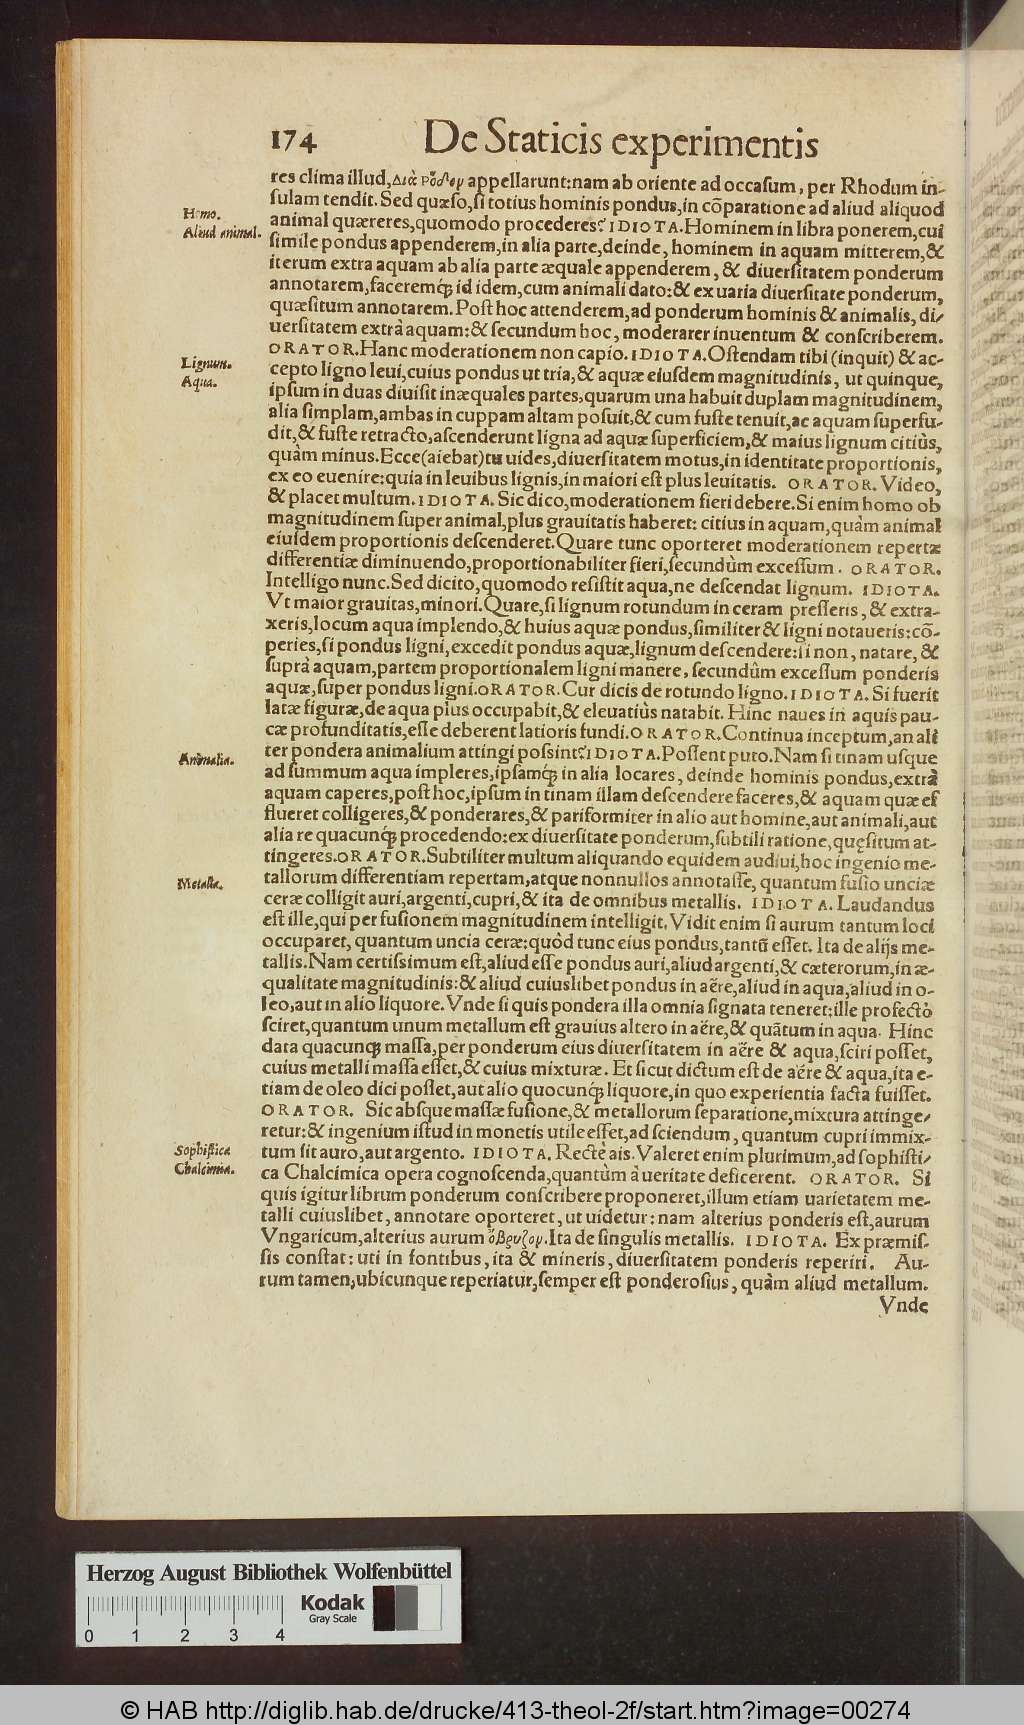 174 De Staticis experimentis
res clima illud, Διὰ Ρόδου appellarunt: nam ab oriente ad occasum, per Rhodum in-
sulam tendit. Sed quæso, si totius hominis pondus, in cõparatione ad aliud aliquod
Homo.
Aliud animal.
animal quæreres, quomodo procederes? IDIOTA. Hominem in libra ponerem, cui
simile pondus appenderem, in alia parte, deinde, hominem in aquam mitterem, &
iterum extra aquam ab alia parte æquale appenderem, & diuersitatem ponderum
annotarem, faceremq́; id idem, cum animali dato: & ex uaria diuersitate ponderum,
quæsitum annotarem. Post hoc attenderem, ad ponderum hominis & animalis, di/
uersitatem extrà aquam: & secundum hoc, moderarer inuentum & conscriberem.
ORATOR. Hanc moderationem non capio. IDIOTA. Ostendam tibi (inquit) & ac-
Lignum.
Aqua.
cepto ligno leui, cuius pondus ut tria, & aquæ eiusdem magnitudinis, ut quinque,
ipsum in duas diuisit inæquales partes, quarum una habuit duplam magnitudinem,
alia simplam, ambas in cuppam altam posuit, & cum fuste tenuit, ac aquam superfu-
dit, & fuste retracto, ascenderunt ligna ad aquæ superficiem, & maius lignum citiùs,
quàm minus. Ecce (aiebat) tu uides, diuersitatem motus, in identitate proportionis,
ex eo euenire: quia in leuibus lignis, in maiori est plus leuitatis. ORATOR. Video,
& placet multum. IDIOTA. Sic dico, moderationem fieri debere. Si enim homo ob
magnitudinem super animal, plus grauitatis haberet: citius in aquam, quàm animal
eiusdem proportionis descenderet. Quare tunc oporteret moderationem repertæ
differentiæ diminuendo, proportionabiliter fieri, secundùm excessum. ORATOR.
Intelligo nunc. Sed dicito, quomodo resistit aqua, ne descendat lignum. IDIOTA.
Vt maior grauitas, minori. Quare, si lignum rotundum in ceram presseris, & extra-
xeris, locum aqua implendo, & huius aquæ pondus, similiter & ligni notaueris: cõ-
peries, si pondus ligni, excedit pondus aquæ, lignum descendere: si non, natare, &
suprà aquam, partem proportionalem ligni manere, secundûm excessum ponderis
aquæ, super pondus ligni. ORATOR. Cur dicis de rotundo ligno. IDIOTA. Si fuerit
latæ figuræ, de aqua plus occupabit, & eleuatiùs natabit. Hinc naues in aquis pau-
cæ profunditatis, esse deberent latioris fundi. ORATOR. Continua inceptum, an ali
Animalia.
ter pondera animalium attingi possint? IDIOTA. Possent puto. Nam si tinam usque
ad summum aqua impleres, ipsamq́; in alia locares, deinde hominis pondus, extrà
aquam caperes, post hoc, ipsum in tinam illam descendere faceres, & aquam quæ ef
flueret colligeres, & ponderares, & pariformiter in alio aut homine, aut animali, aut
alia re quacunq́; procedendo: ex diuersitate ponderum, subtili ratione, quęsitum at-
tingeres. ORATOR. Subtiliter multum aliquando equidem audiui, hoc ingenio me-
Metalla.
tallorum differentiam repertam, atque nonnullos annotasse, quantum fusio unciæ
ceræ colligit auri, argenti, cupri, & ita de omnibus metallis. IDIOTA. Laudandus
est ille, qui per fusionem magnitudinem intelligit. Vidit enim si aurum tantum loci
occuparet, quantum uncia ceræ: quòd tunc eius pondus, tantũ esset. Ita de alijs me-
tallis. Nam certissimum est, aliud esse pondus auri, aliud argenti, & cæterorum, in æ-
qualitate magnitudinis: & aliud cuiuslibet pondus in aëre, aliud in aqua, aliud in o-
leo, aut in alio liquore. Vnde si quis pondera illa omnia signata teneret: ille profectò
sciret, quantum unum metallum est grauius altero in aëre, & quãtum in aqua. Hinc
data quacunq́; massa, per ponderum eius diuersitatem in aëre & aqua, sciri posset,
cuius metalli massa esset, & cuius mixturæ. Et sicut dictum est de aëre & aqua, ita e-
tiam de oleo dici posset, aut alio quocunq́; liquore, in quo experientia facta fuisset.
ORATOR. Sic absque massæ fusione, & metallorum separatione, mixtura attinge/
retur: & ingenium istud in monetis utile esset, ad sciendum, quantum cupri immix-
Sophistica
Chalcimia.
tum sit auro, aut argento. IDIOTA. Rectè ais. Valeret enim plurimum, ad sophisti/
ca Chalcimica opera cognoscenda, quantùm à ueritate deficerent. ORATOR. Si
quis igitur librum ponderum conscribere proponeret, illum etiam uarietatem me-
talli cuiuslibet, annotare oporteret, ut uidetur: nam alterius ponderis est, aurum
Vngaricum, alterius aurum ὄβρυζον. Ita de singulis metallis. IDIOTA. Ex præmis-
sis constat: uti in fontibus, ita & mineris, diuersitatem ponderis reperiri. Au-
rum tamen, ubicunque reperiatur, semper est ponderosius, quàm aliud metallum.
Vnde
Herzog August Bibliothek Wolfenbüttel
Kodak
Gray Scale
0 1 2 3 4
© HAB http://diglib.hab.de/drucke/413-theol-2f/start.htm?image=00274